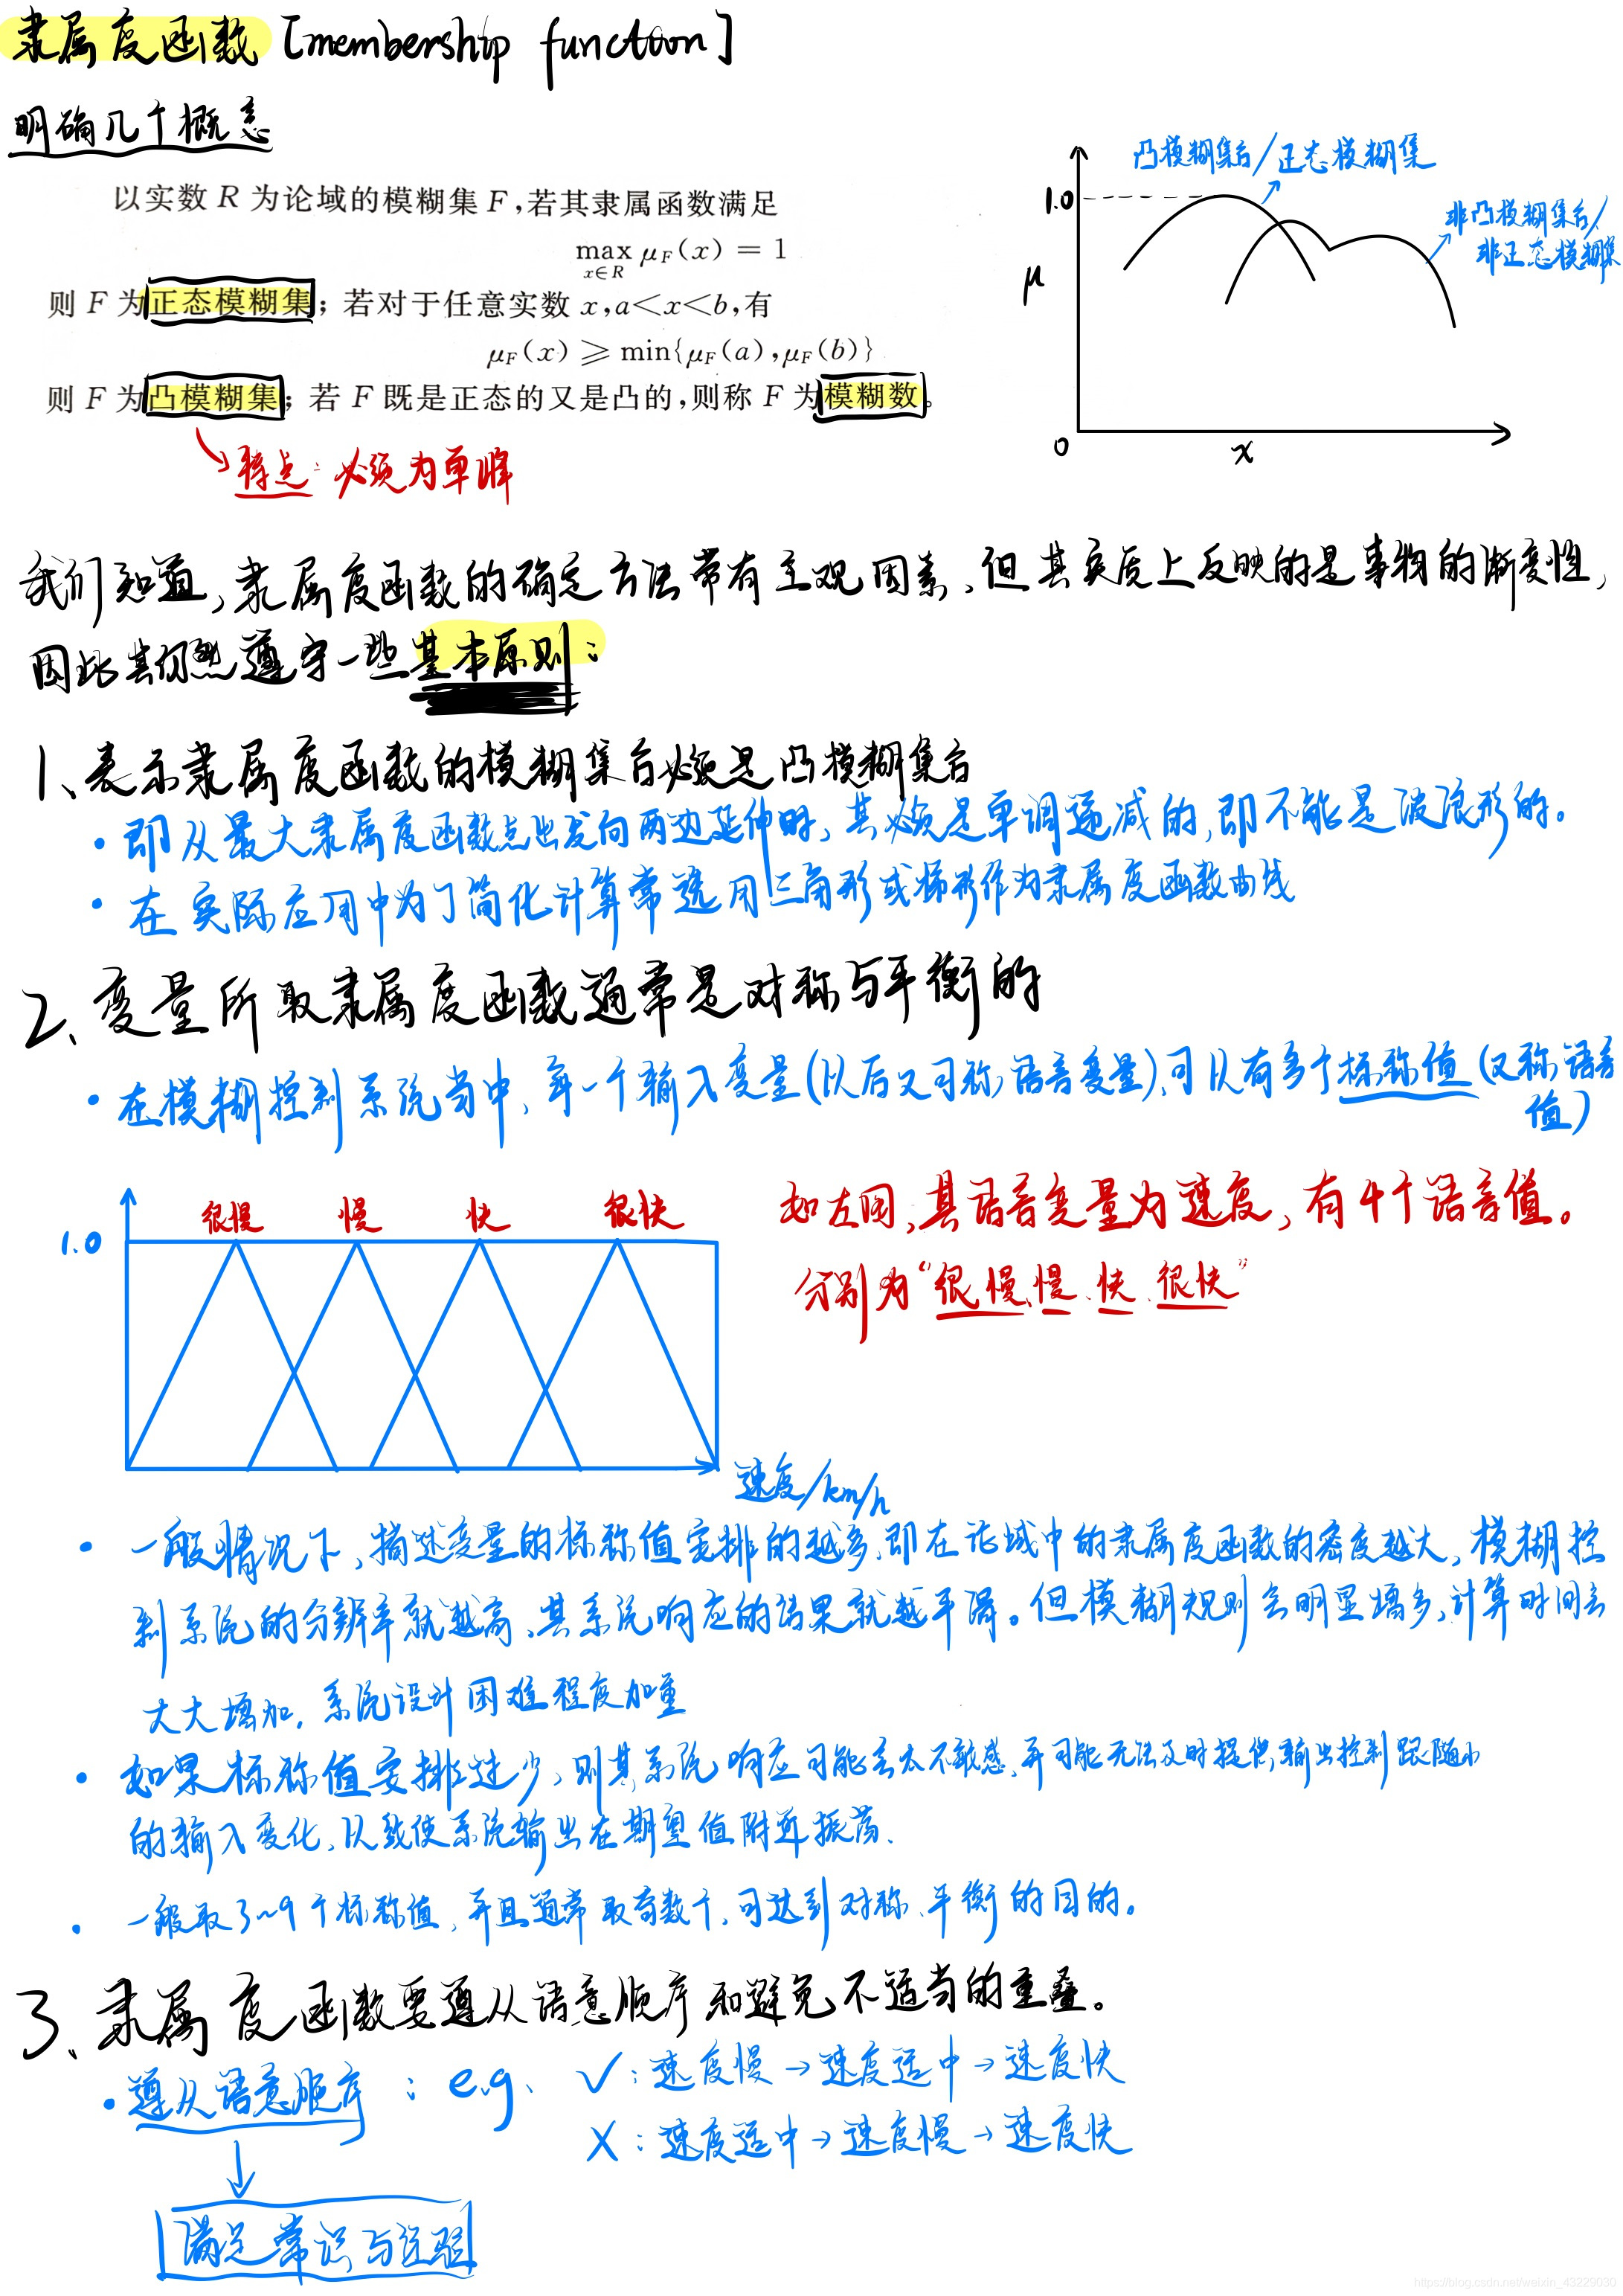 隶属度函数 [membership function]
明确几个概念
以实数 R 为论域的模糊集 F,若其隶属函数满足
max μF(x) = 1
x∈R
则 F 为正态模糊集; 若对于任意实数 x,a<x<b,有
μF(x) ⩾ min{μF(a),μF(b)}
则 F 为凸模糊集; 若 F 既是正态的又是凸的,则称 F 为模糊数。
特点: 必须为单峰
凸模糊集合/正态模糊集
1.0
非凸模糊集合/
非正态模糊集
μ
0
x
我们知道,隶属度函数的确定方法带有主观因素,但其实质上反映的是事物的渐变性,
因此其仍然遵守一些基本原则:
1、表示隶属度函数的模糊集合必须是凸模糊集合
· 即从最大隶属度函数点出发向两边延伸时,其必须是单调递减的,即不能是波浪形的。
· 在实际应用中为了简化计算常选用三角形或梯形作为隶属度函数曲线
2、变量所取隶属度函数通常是对称与平衡的
· 在模糊控制系统当中,每一个输入变量(以后又可称语言变量),可以有多个标称值(又称语言
值)
很慢 慢 快 很快
1.0
速度/km/h
如左图,其语言变量为速度,有4个语言值。
分别为“很慢、慢、快、很快”
· 一般情况下,描述变量的标称值安排的越多,即在论域中的隶属度函数的密度越大,模糊控
制系统的分辨率就越高,其系统响应的结果就越平滑。但模糊规则会明显增多,计算时间会
大大增加,系统设计困难程度加重
· 如果标称值安排过少,则其系统响应可能会太不敏感,并可能无法及时提供输出控制跟随小
的输入变化,以致使系统输出在期望值附近振荡.
· 一般取3~9个标称值,并且通常取奇数个,可达到对称、平衡的目的。
3、隶属度函数要遵从语意顺序和避免不适当的重叠。
· 遵从语意顺序 : e.g. ✓:速度慢→速度适中→速度快
X:速度适中→速度慢→速度快
满足常识与经验
https://blog.csdn.net/weixin_43229030